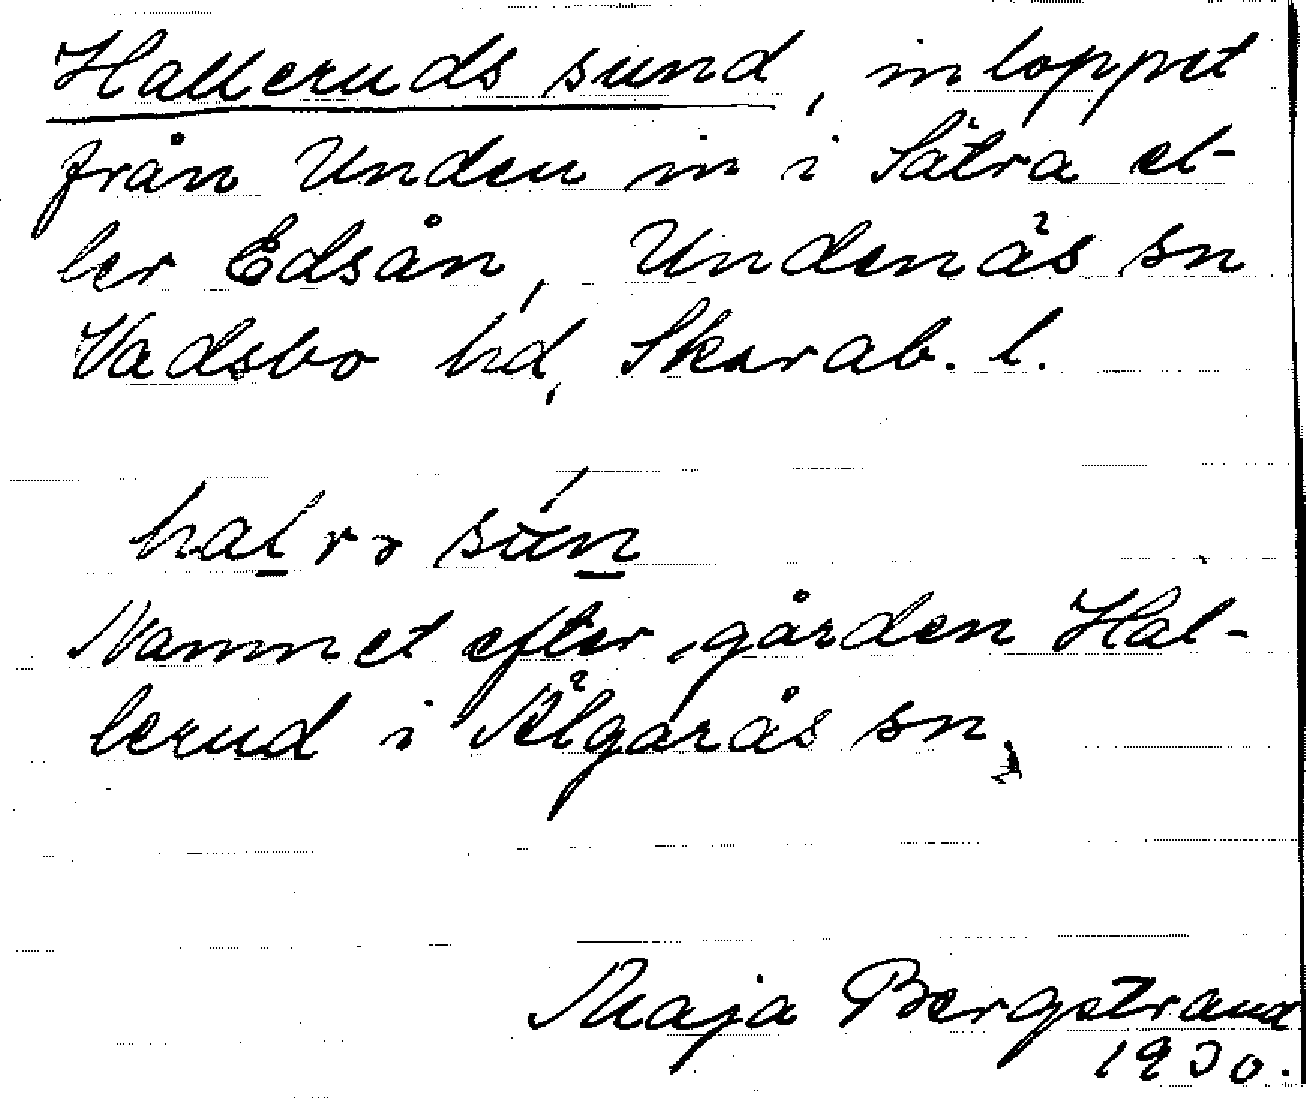 Halleruds sund, inloppet
från Unden in i Sätra el-
ler Edsån, Undenäs sn
Vadsbo hd, Skarab. l.
Namnet efter gården Hal-
lerud i Älgarås sn.
Maja Bergstrand
1930.